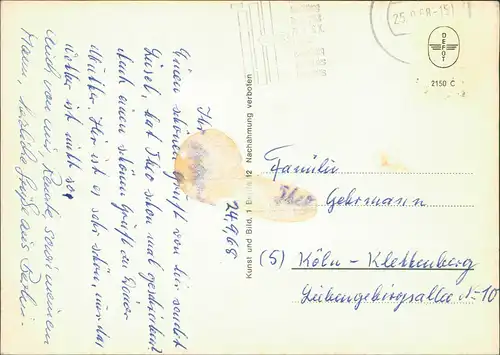 Ihr
Einen schönen Gruß von hier sendet
Liesel, hat Theo schon mal geschrieben
Auch einen schönen Gruß an Deine
Mutter. Hier ist es sehr schön, nur das
Wetter ist nicht so,
Auch von mir, Renate sowie meinem
Mann, herzliche Grüße aus Berlin.
24.9.68
Kunst und Bild, 1 Berlin 12 Nachahmung verboten
25. 9.68-15
DEFOT
2150 C
Familie
Theo Gehrmann
(5) Köln - Klettenberg
Siebengebirgsallee 10